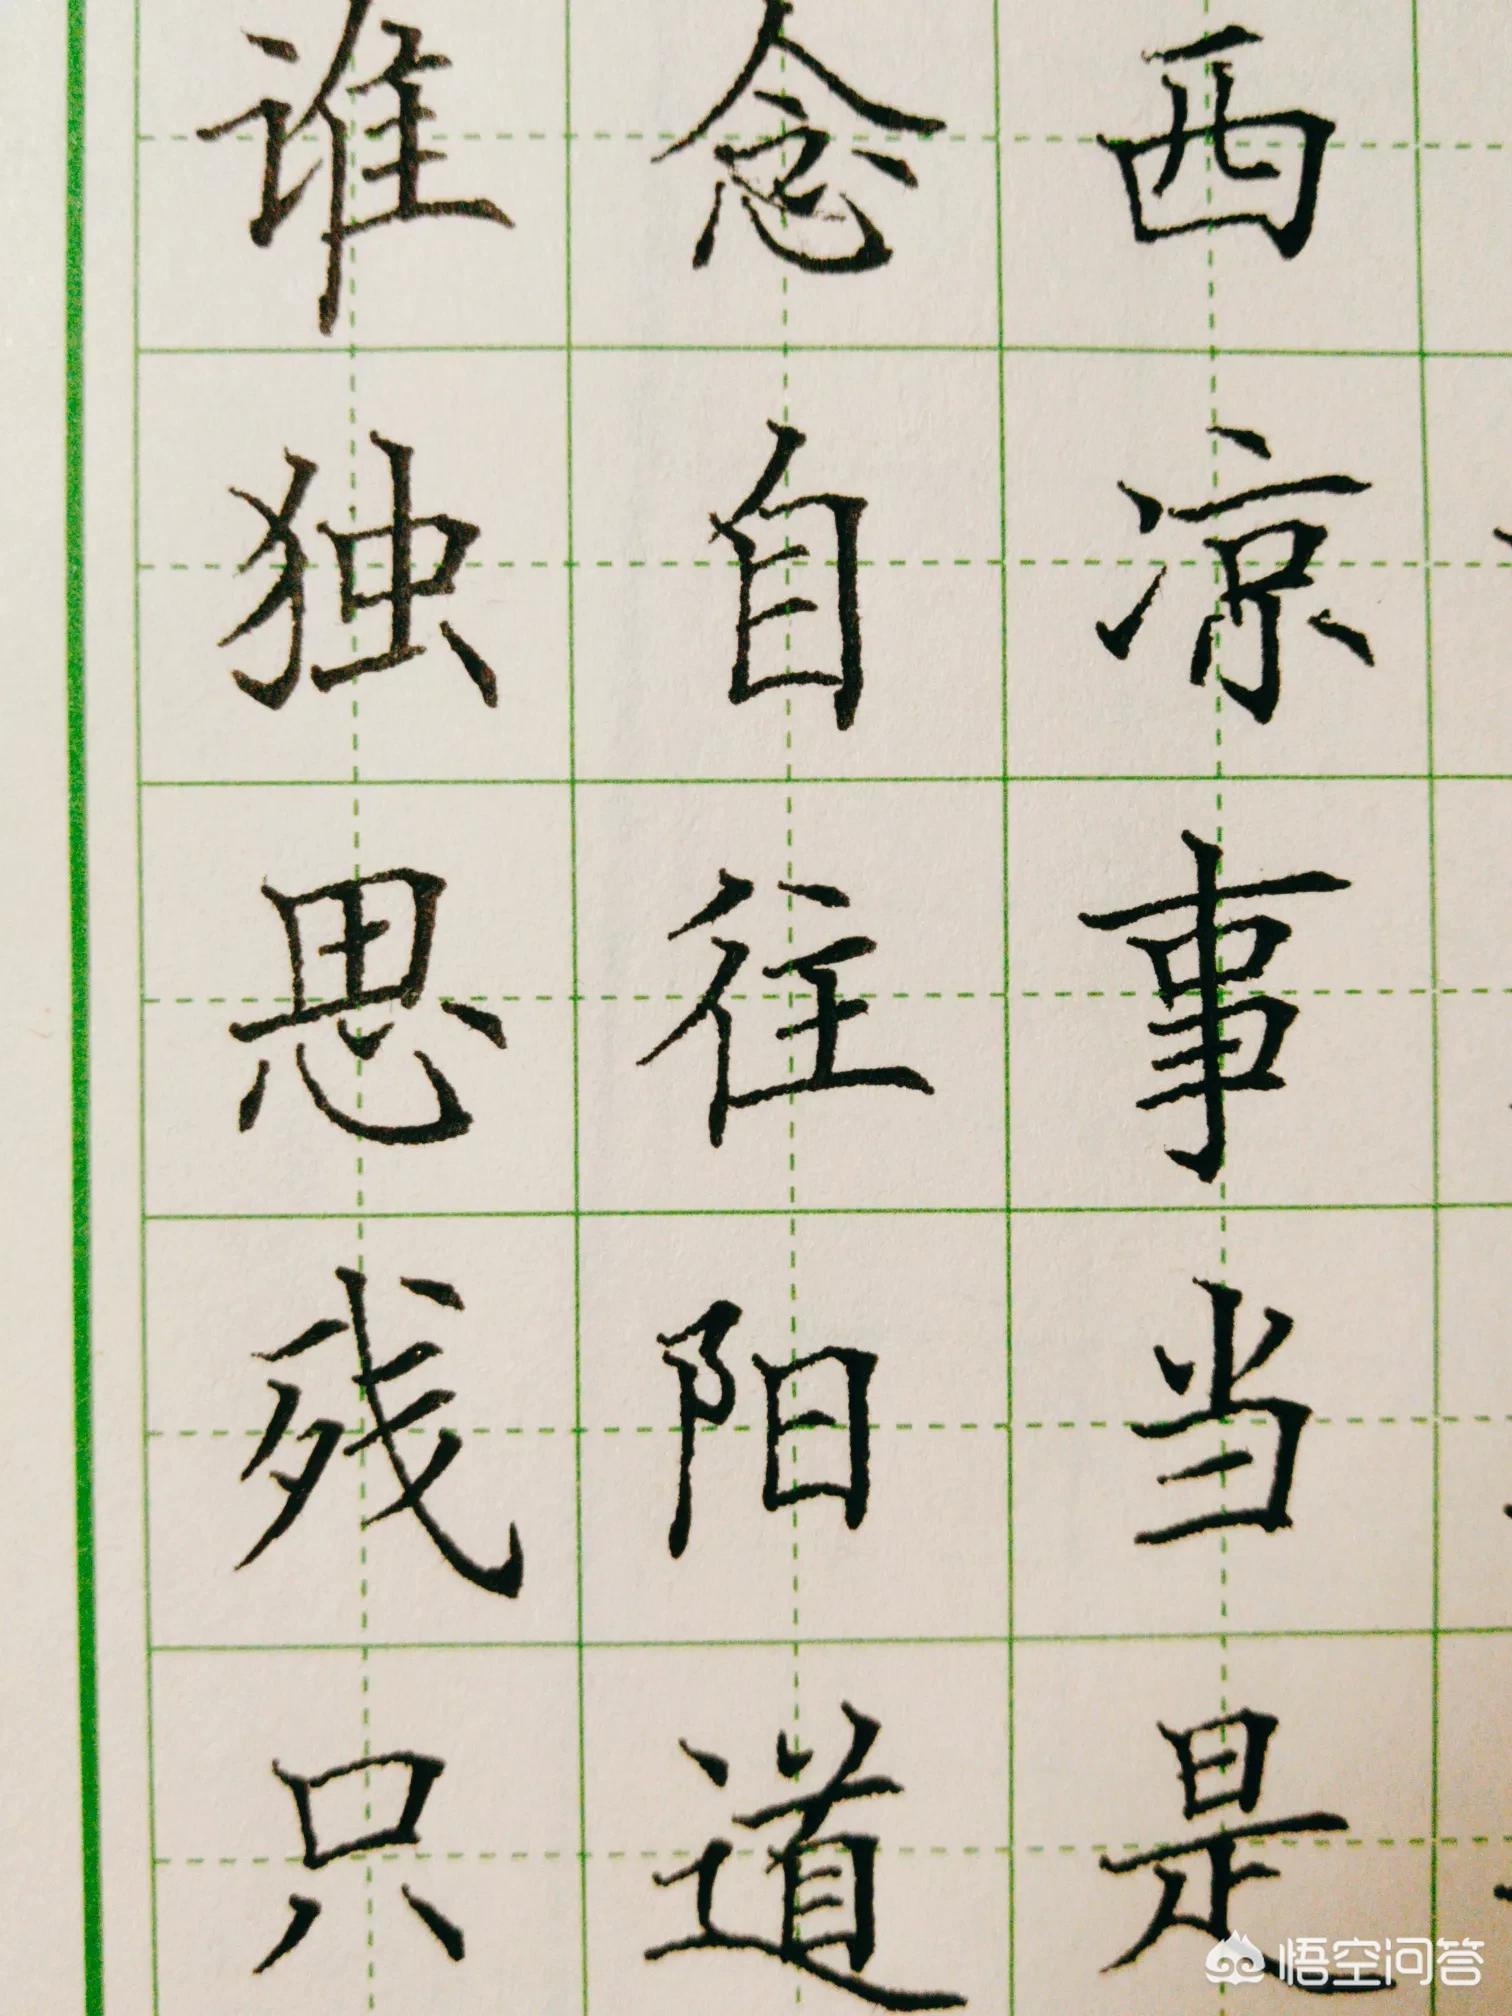 谁念西
独自凉
思往事
残阳当
只道是
悟空问答